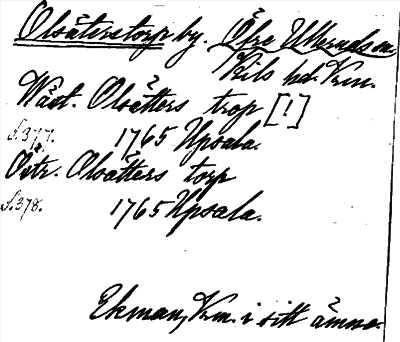 Olsäterstorp by. Övre Ulleruds sn.
Kils hd. Vrm.
Wäst. Olsätters trop [!]
S.377. 1765 Upsala.
Östr. Olsätters torp
S.378. 1765 Upsala.
Ekman, Vrm. i sitt ämne.